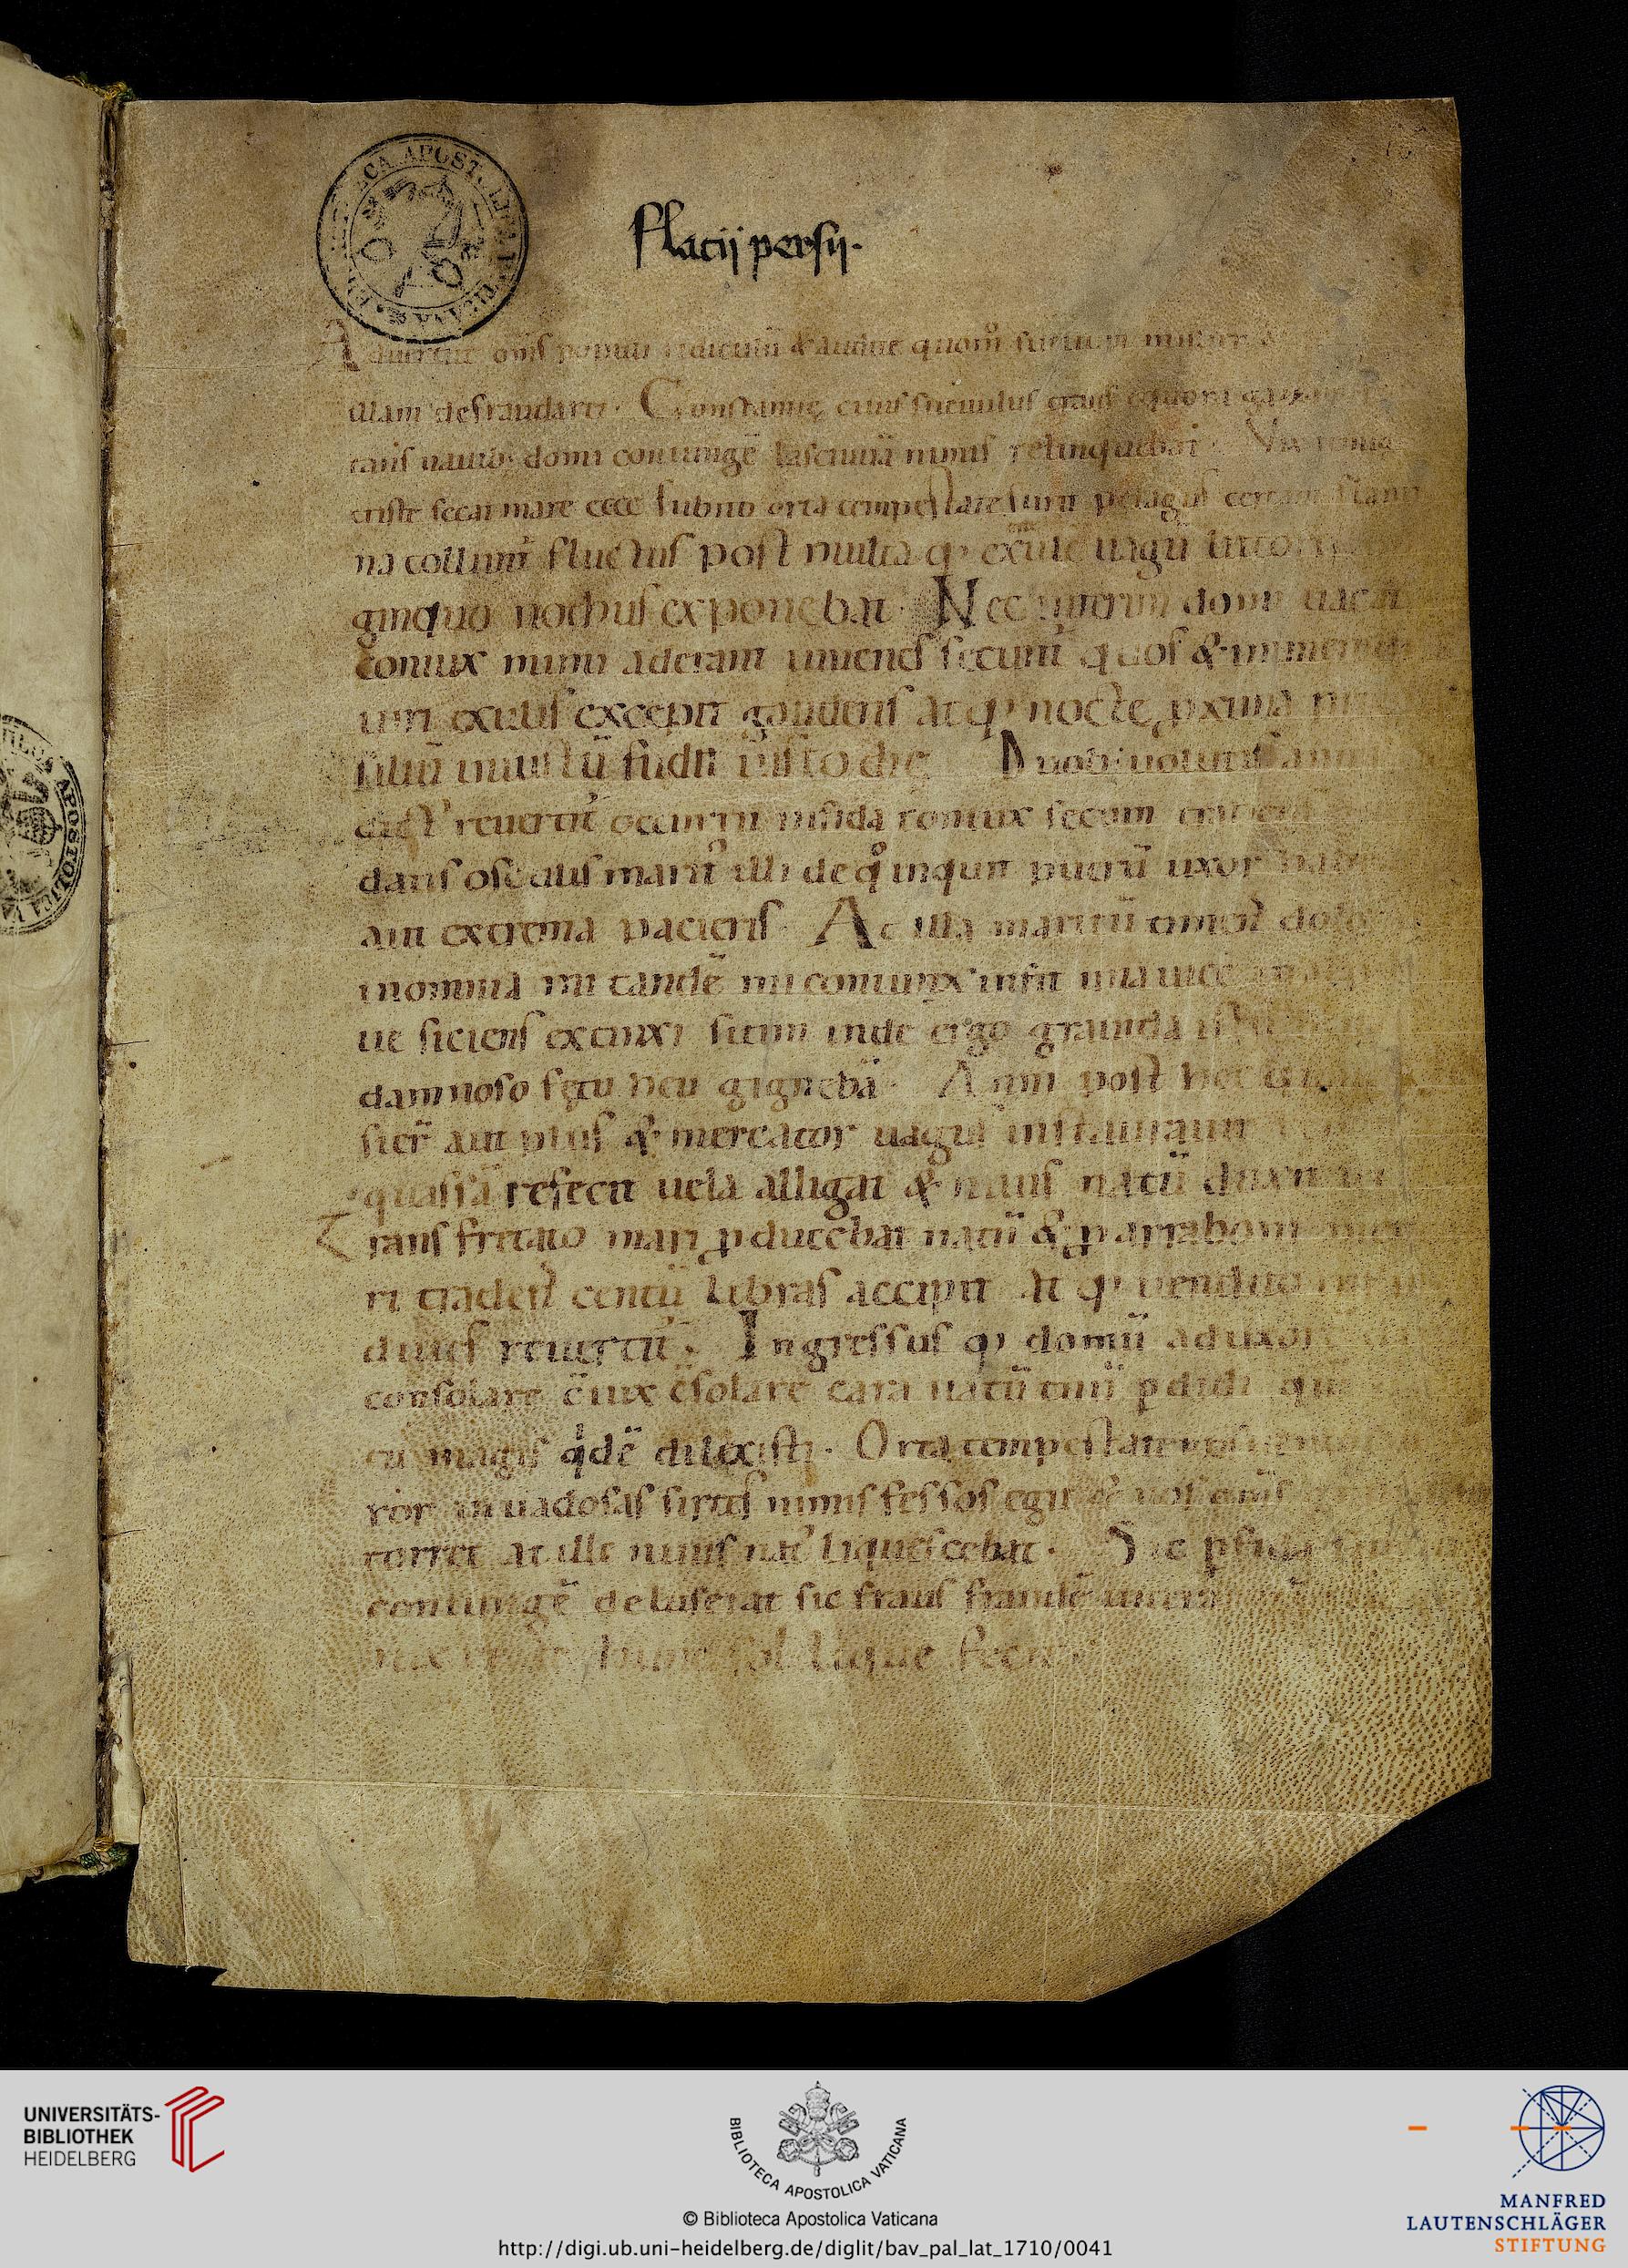 flacii persij.
Aduertite om̅s populi ridiculū & audite quom̊ sueuum mulier &
illam defraudarit. Constantię ciuis sueuulus
tans nauib; domi coniungē lasciuiā nimis relinquebat. Vix remige
triste secat mare ecce subito orta tempestate furit pelagus certant flami
na tollunt̅ fluctus post multaq; exulē uagū littore
ginquo nothus exponebat. Nec interim domi uacat
coniux mimi aderant iuuenes secunt̅ quos &
uiri exulis excepit gaudens atq; nocte ꝓxima
filiū iniustū fudit iusto die Duob; uolutis annis
exul reuertit̉ occurrit infida coniux secum trahens
datis osculis marit̉ illi de q̊ inquit puerū uxor
aut extrema pacieris. At illa maritū timens dolos
in omnia mi tandē mi coniunx infit una uice
ue siciens extinxi sitim inde ergo grauida
damnoso fętu heu gignebā. Anni post hęc
sier̄ aut plus & mercator uagus instaurauit
quassā refecit uela alligat & niuis natū duxit
Transfretato mari ꝓducebat natū & ꝓ arraboni
ri tradens centū libras accipit Atq; uendito
diues reuertit̉. Ingressusq; domū ad uxorē
consolare c̄iux c̄solare cara natū tuū ꝑdidi quē
tu magis qͥdē dilexisti. Orta tempestate nos
ror in uadosas sirtes nimis fessos egit & nos om̅s
torret at ille niuis nat̉ liquescebat. Sic ꝑfidā
coniungē deluserat sic fraus fraudē uicerat
sol lique fecit
UNIVERSITÄTS-
BIBLIOTHEK
HEIDELBERG
BIBLIOTECA APOSTOLICA VATICANA
© Biblioteca Apostolica Vaticana
http://digi.ub.uni-heidelberg.de/diglit/bav_pal_lat_1710/0041
MANFRED
LAUTENSCHLÄGER
STIFTUNG